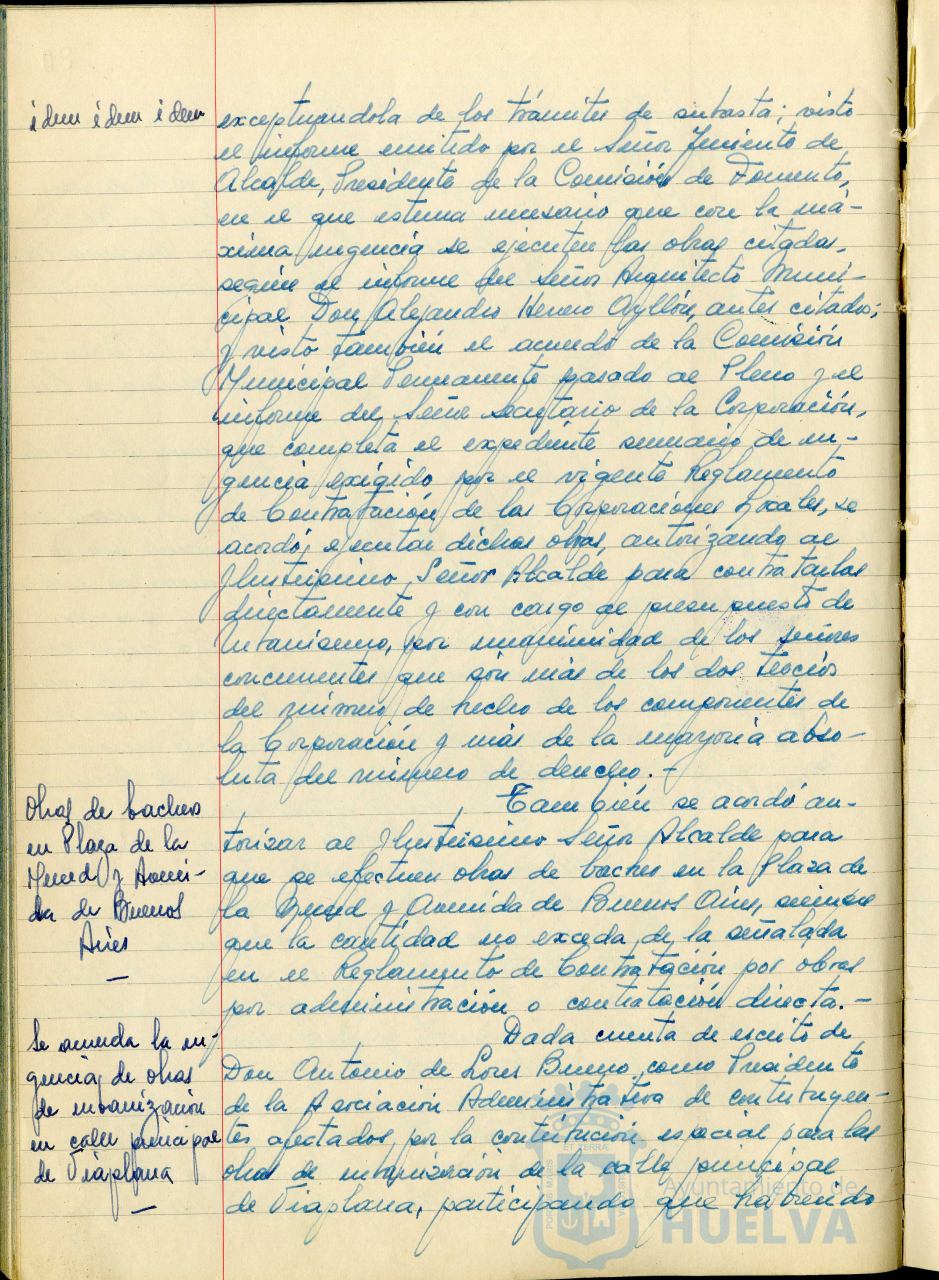 idem idem idem
exceptuandola de los trámites de subasta; visto
el informe emitido por el Señor Teniente de
Alcalde, Presidente de la Comisión de Fomento,
en el que estima necesario que con la má-
xima urgencia se ejecuten las obras citadas,
según el informe del Señor Arquitecto Muni-
cipal Don Alejandro Herrero Ayllón, antes citados;
y visto también el acuerdo de la Comisión
Municipal Permanente pasado al Pleno y el
informe del Señor Secretario de la Corporación,
que completa el expediente sumario de ur-
gencia exigido por el vigente Reglamento
de Contratación de las Corporaciones Locales, se
acordó, ejecutar dichas obras, autorizando al
Ilustrisimo Señor Alcalde para contratarlas
directamente y con cargo al presupuesto de
Urbanismo, por unanimidad de los señores
concurrentes que son más de los dos tercios
del número de hecho de los componentes de
la Corporación y más de la mayoría abso-
luta del número de derecho.-
Obras de bacheo
en Plaza de la
Merced y Aveni-
da de Buenos
Aires
—
También se acordó au-
torizar al Ilustrisimo Señor Alcalde para
que se efectuen obras de baches en la Plaza de
la Merced y Avenida de Buenos Aires, siempre
que la cantidad no exceda de la señalada
en el Reglamento de Contratación por obras
por administración o contratación directa.-
Se acuerda la ur-
gencia de obras
de urbanización
en calle principal
de Viaplana
—
Dada cuenta de escrito de
Don Antonio de Lores Bueno, como Presidente
de la Asociación Administrativa de contribuyen-
tes afectados, por la contribución especial para las
obras de urbanización de la calle principal
de Viaplana, participando que habiendo
Ayuntamiento de
HUELVA